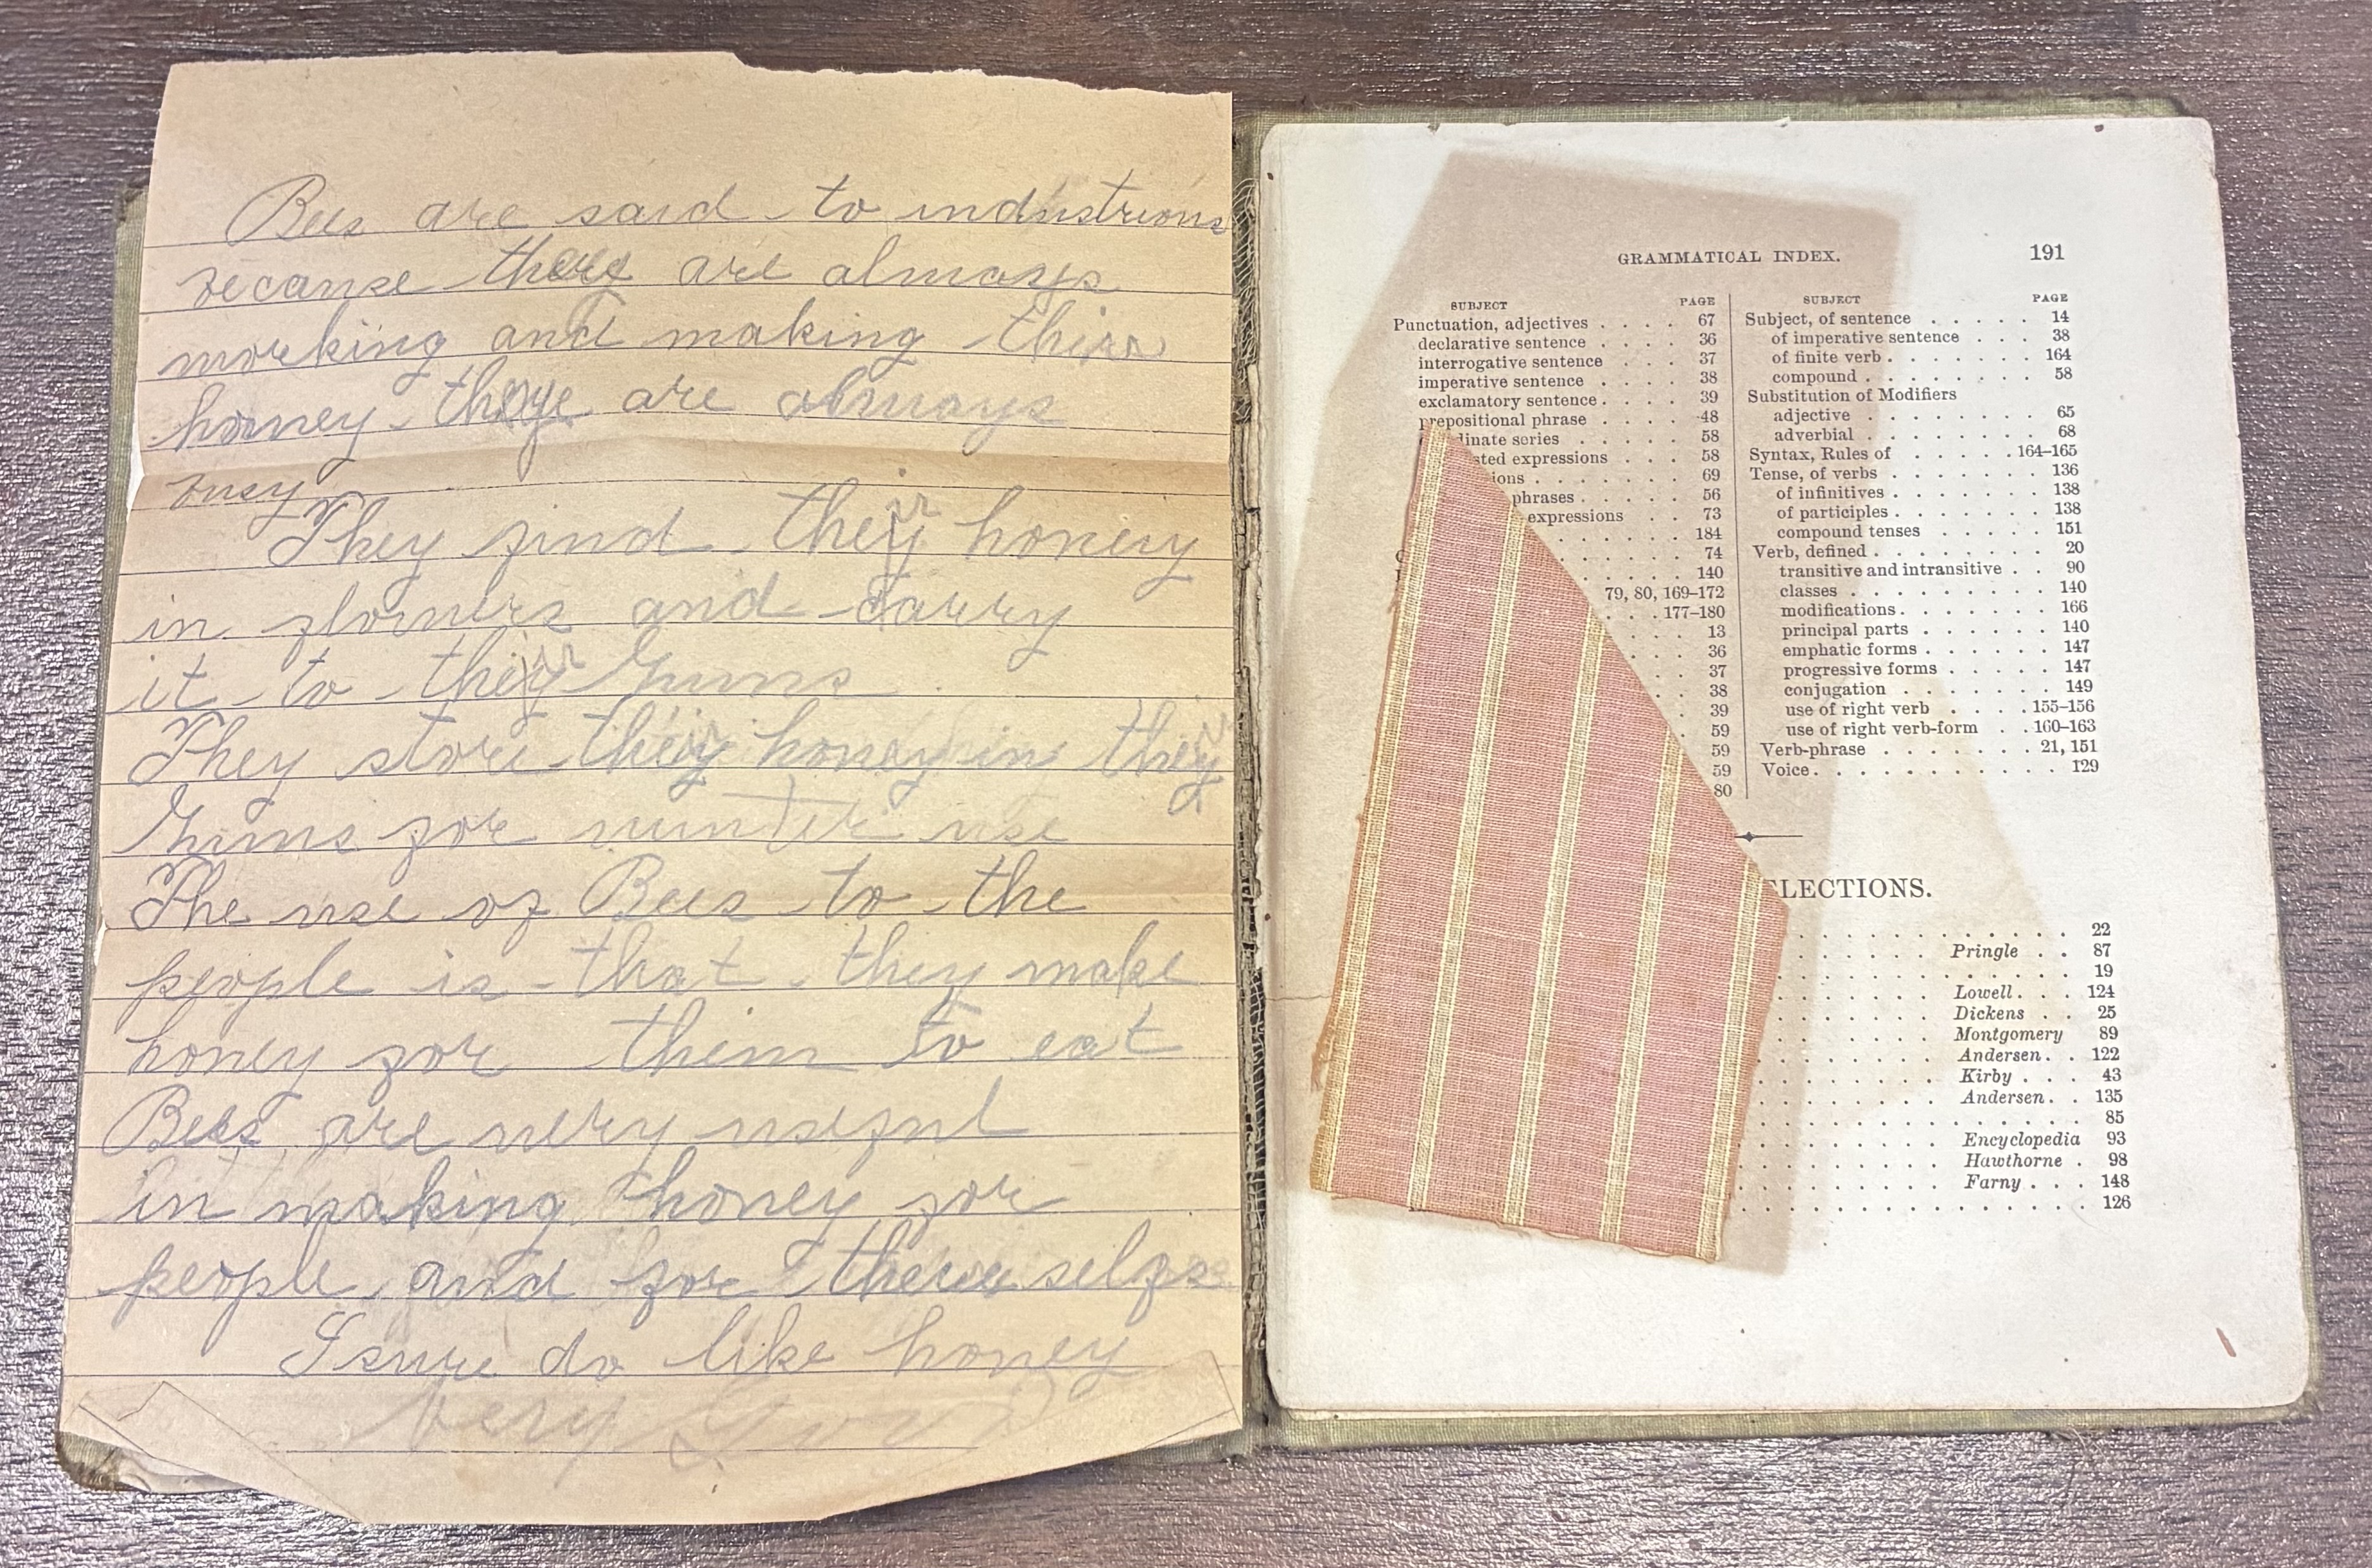 Bees are said to industrious
because they are always
working and making their
honey they are always
busy
They find their honey
in flowers and carry
it to their Gums
They store their honey in their
Gums for winter use
The use of Bees to the
people is that they make
honey for them to eat
Bees are very useful
in making honey for
people and for theirselfs
I sure do like honey
very
GRAMMATICAL INDEX. 191
SUBJECT PAGE
Punctuation, adjectives . . . . 67
declarative sentence . . . . 36
interrogative sentence . . . 37
imperative sentence . . . . 38
exclamatory sentence . . . . 39
prepositional phrase . . . . 48
dinate series . . . . . 58
sted expressions . . . 58
ions . . . . . . . 69
phrases . . . . . 56
expressions . . 73
184
74
140
79, 80, 169–172
177–180
13
36
37
38
39
59
59
59
80
SUBJECT PAGE
Subject, of sentence . . . . . 14
of imperative sentence . . . 38
of finite verb . . . . . . . 164
compound . . . . . . . . 58
Substitution of Modifiers
adjective . . . . . . . . 65
adverbial . . . . . . . . 68
Syntax, Rules of . . . . . 164–165
Tense, of verbs . . . . . . . 136
of infinitives . . . . . . . 138
of participles . . . . . . . 138
compound tenses . . . . . 151
Verb, defined . . . . . . . . 20
transitive and intransitive . . 90
classes . . . . . . . . . 140
modifications . . . . . . . 166
principal parts . . . . . . 140
emphatic forms . . . . . . 147
progressive forms . . . . . 147
conjugation . . . . . . . 149
use of right verb . . . . 155–156
use of right verb-form . . 160–163
Verb-phrase . . . . . . . 21, 151
Voice . . . . . . . . . . . 129
ELECTIONS.
22
Pringle . . 87
19
Lowell . . . 124
Dickens . . 25
Montgomery 89
Andersen . . 122
Kirby . . . 43
Andersen . . 135
85
Encyclopedia 93
Hawthorne . 98
Farny . . . 148
126